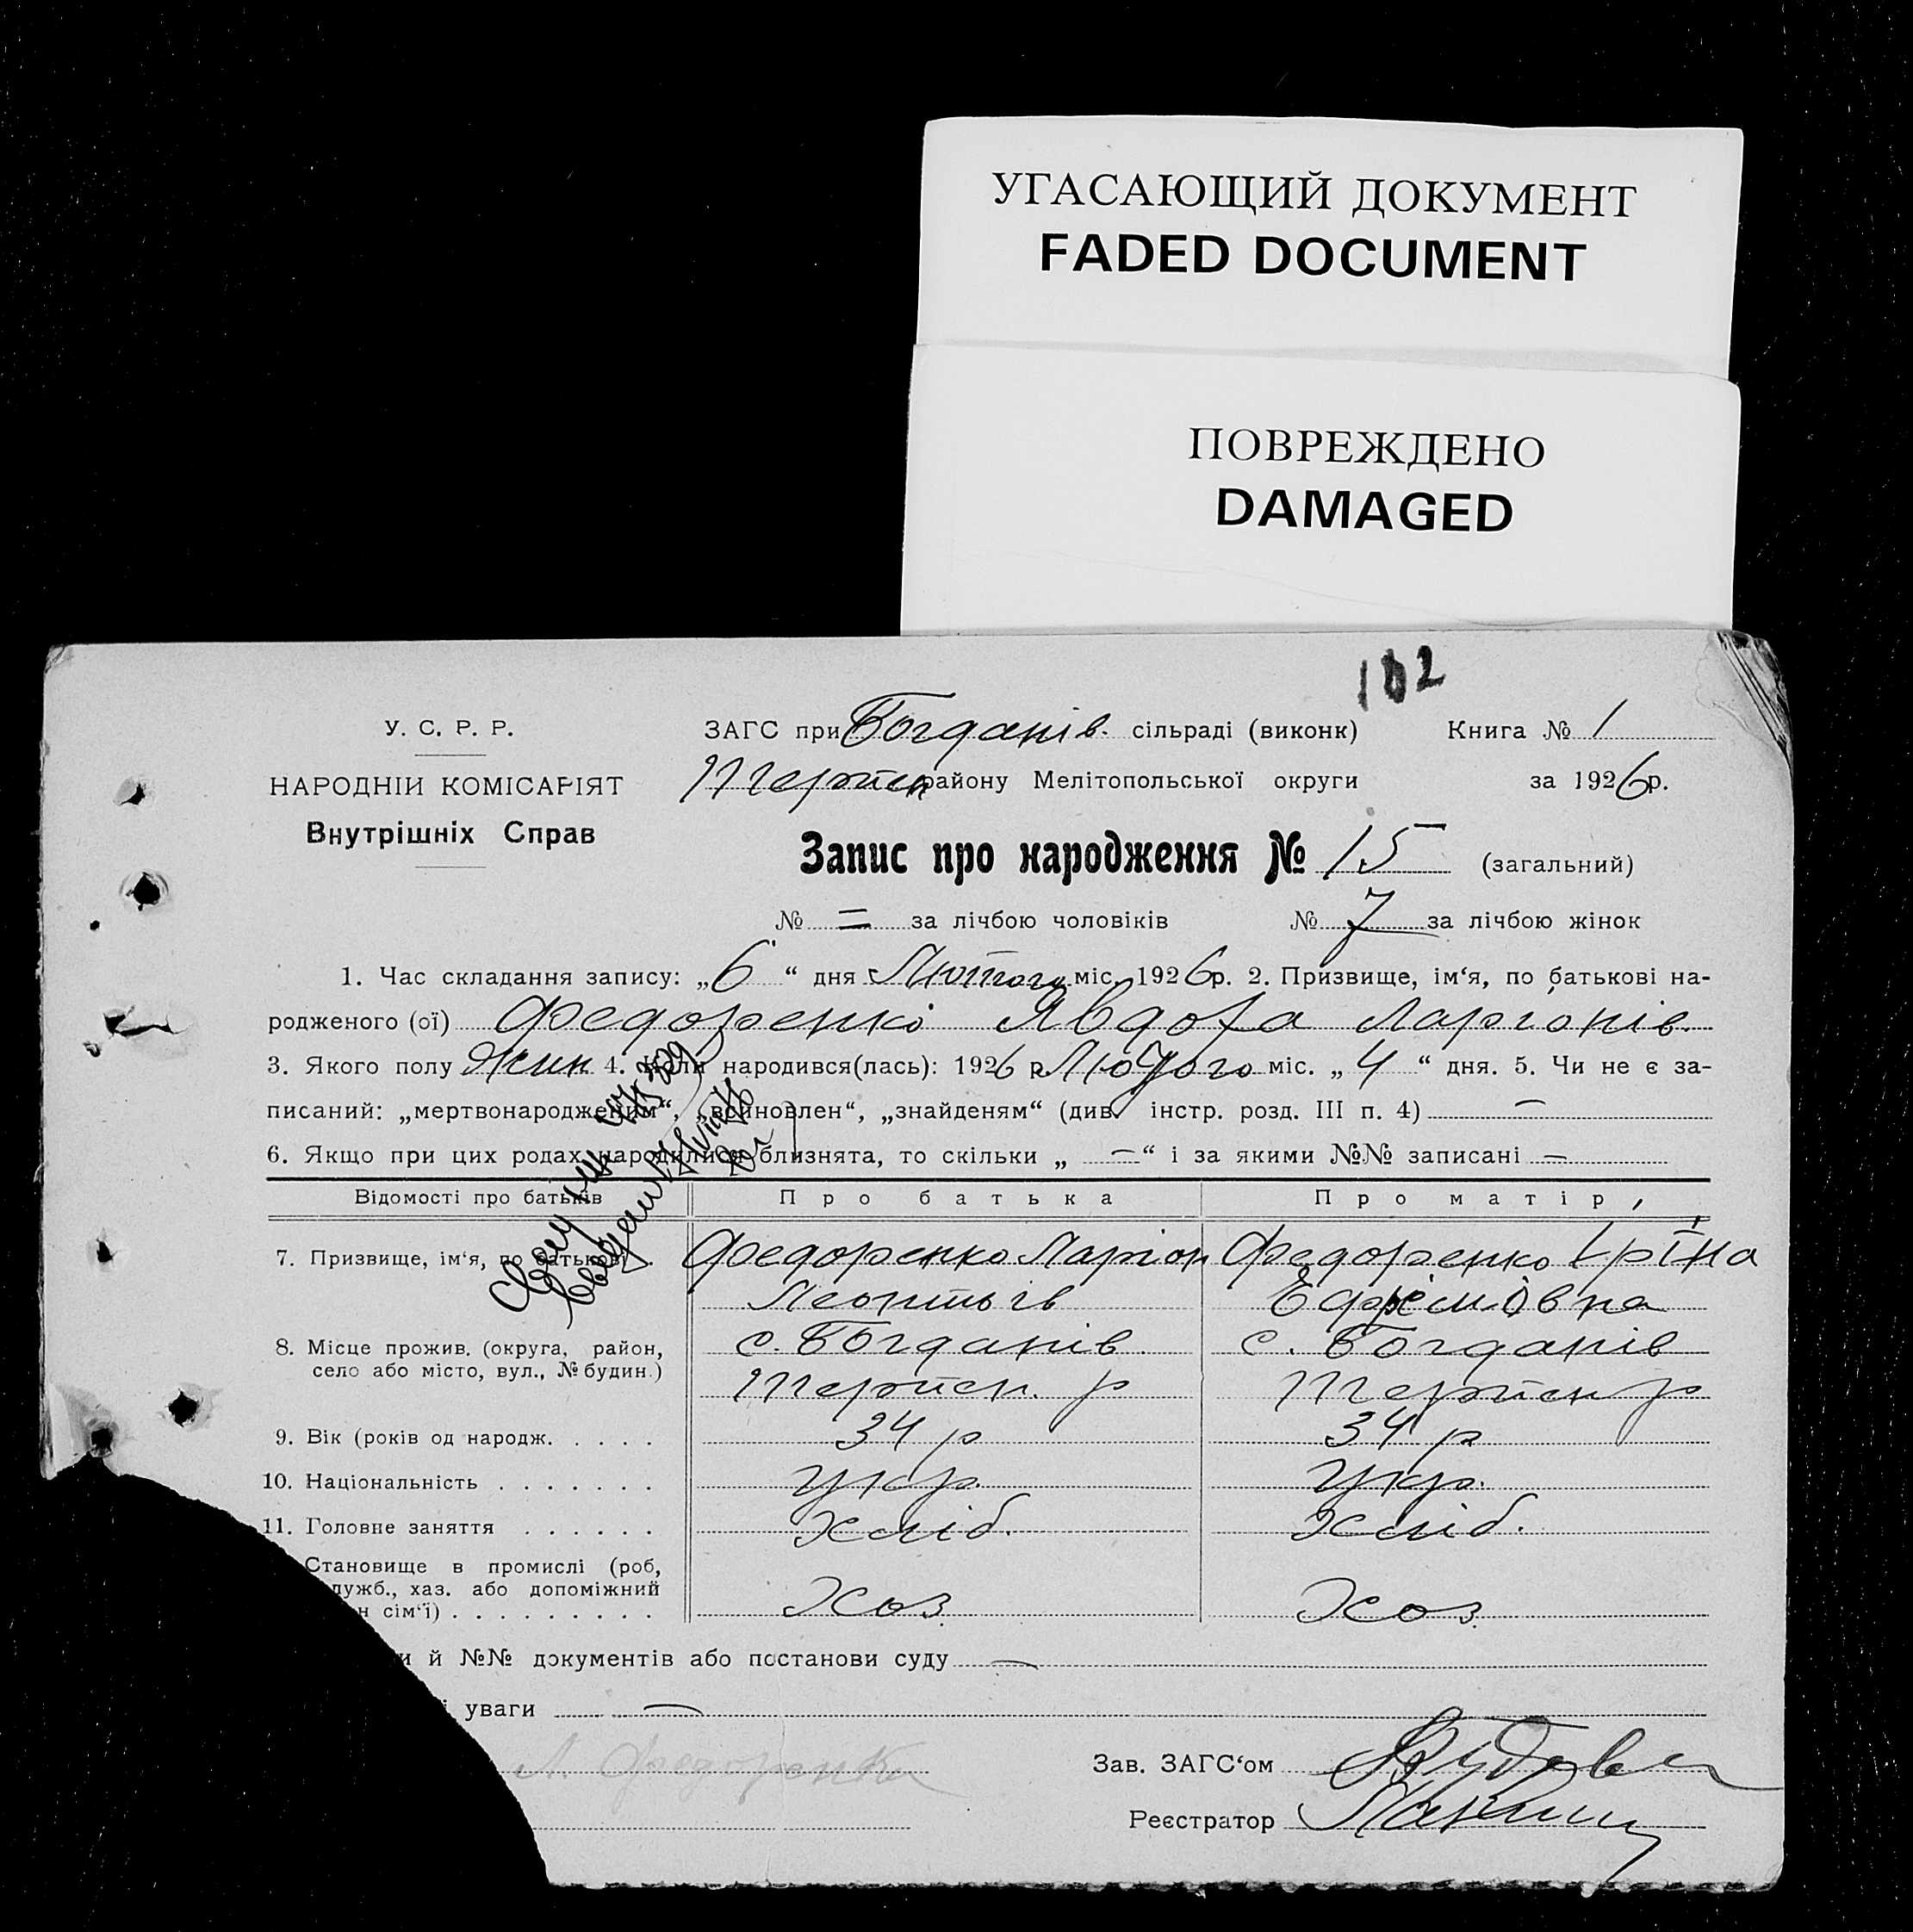 УГАСАЮЩИЙ ДОКУМЕНТ
FADED DOCUMENT
ПОВРЕЖДЕНО
DAMAGED
102
У. С. Р. Р.
НАРОДНІЙ КОМІСАРІЯТ
Внутрішніх Справ
ЗАГС при Богданів. сільраді (виконк) Книга № 1
Терпен району Мелітопольської округи за 1926 р.
Запис про народження № 15 (загальний)
№ = за лічбою чоловіків № 7 за лічбою жінок
1. Час складання запису: „6“ дня Лютого міс. 1926 р. 2. Призвище, ім‘я, по батькові на-
родженого (ої) Федоренко Явдоха Ларіонів.
3. Якого полу жин 4. Коли народився(лась): 1926 р Лютого міс. „4“ дня. 5. Чи не є за-
писаний: „мертвонародженим“, „всиновлен“, „знайденям“ (див. інстр. розд. III п. 4) —
6. Якщо при цих родах народилися близнята, то скільки „—“ і за якими №№ записані —
Відомості про батьків Про батька Про матір
7. Призвище, ім‘я, по батькові Федоренко Ларіон Федоренко Іріна
Леонтьів Ефрімовна
8. Місце прожив. (округа, район, с. Богданів с. Богданів
село або місто, вул., № будин.) Терпен. р Терпен р
9. Вік (років од народж. . . . . 34 р 34 р
10. Національність . . . . . . . укр. укр.
11. Головне заняття . . . . . . хліб. хліб.
Становище в промислі (роб,
служб., хаз. або допоміжний
н сім‘ї) . . . . . . . . . Хоз Хоз
и й №№ документів або постанови суду —
уваги —
Л. Федоренко
Зав. ЗАГС‘ом
Реєстратор